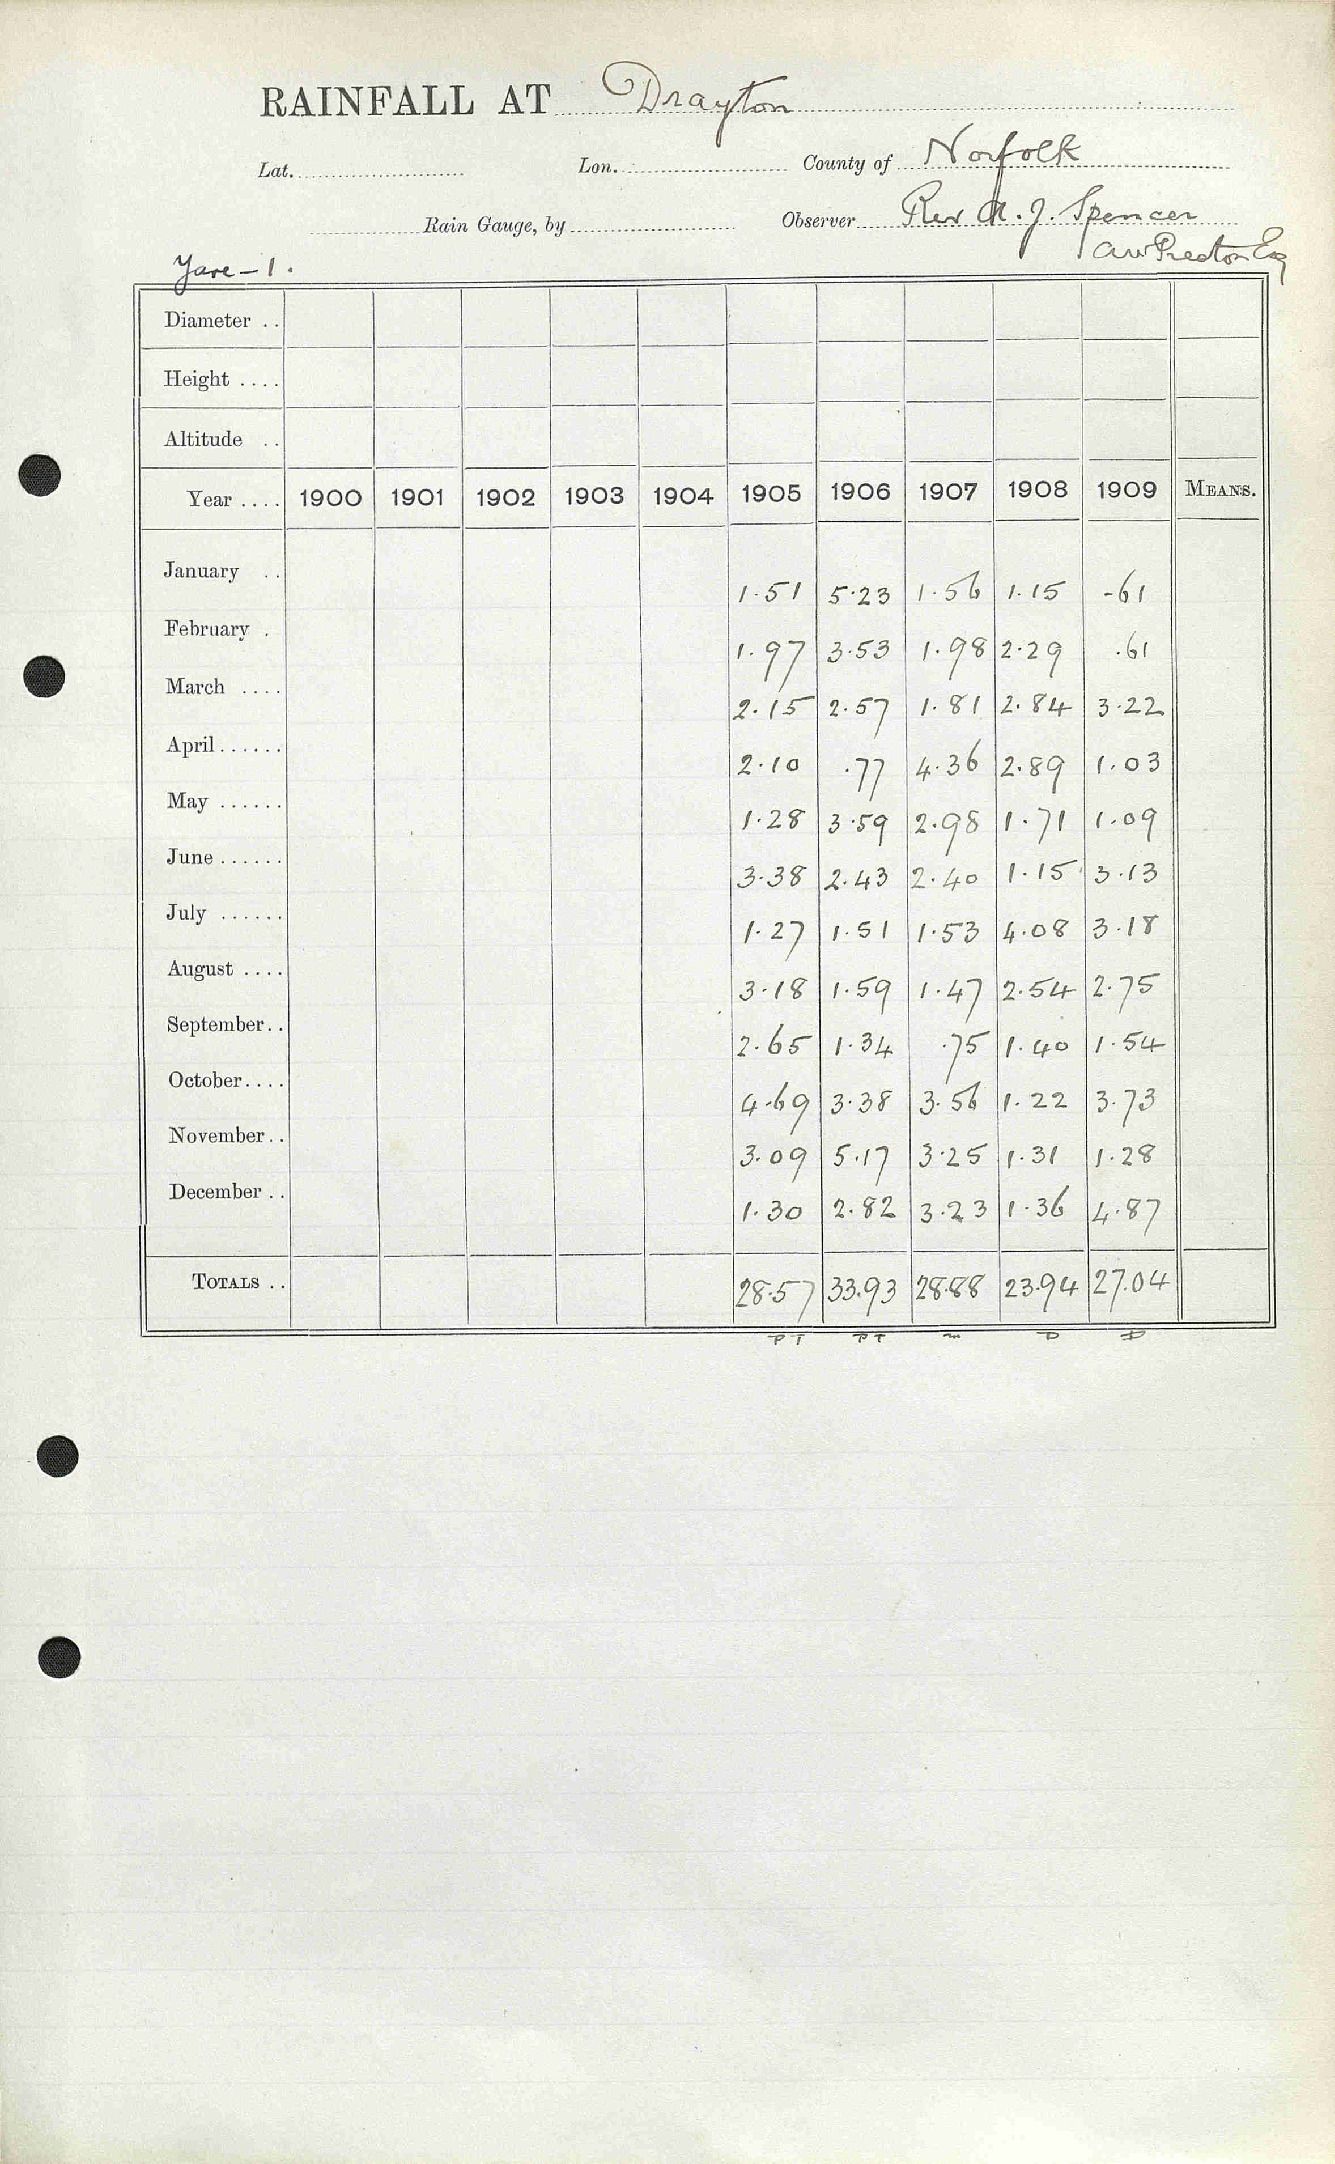 RAINFALL AT Drayton
Lat. Lon. County of Norfolk
Rain Gauge, by Observer Rev A. J. Spencer
AW Preston Esq
Yare - 1.
Diameter ..
Height ....
Altitude ..
Year .... 1900 1901 1902 1903 1904 1905 1906 1907 1908 1909 MEANS.
January .. 1.51 5.23 1.56 1.15 .61
February . 1.97 3.53 1.98 2.29 .61
March .... 2.15 2.57 1.81 2.84 3.22
April...... 2.10 .77 4.36 2.89 1.03
May ...... 1.28 3.59 2.98 1.71 1.09
June...... 3.38 2.43 2.40 1.15 3.13
July ...... 1.27 1.51 1.53 4.08 3.18
August .... 3.18 1.59 1.47 2.54 2.75
September.. 2.65 1.34 .75 1.40 1.54
October.... 4.69 3.38 3.56 1.22 3.73
November.. 3.09 5.17 3.25 1.31 1.28
December .. 1.30 2.82 3.23 1.36 4.87
TOTALS .. 28.57 33.93 28.88 23.94 27.04
PT PT m D D